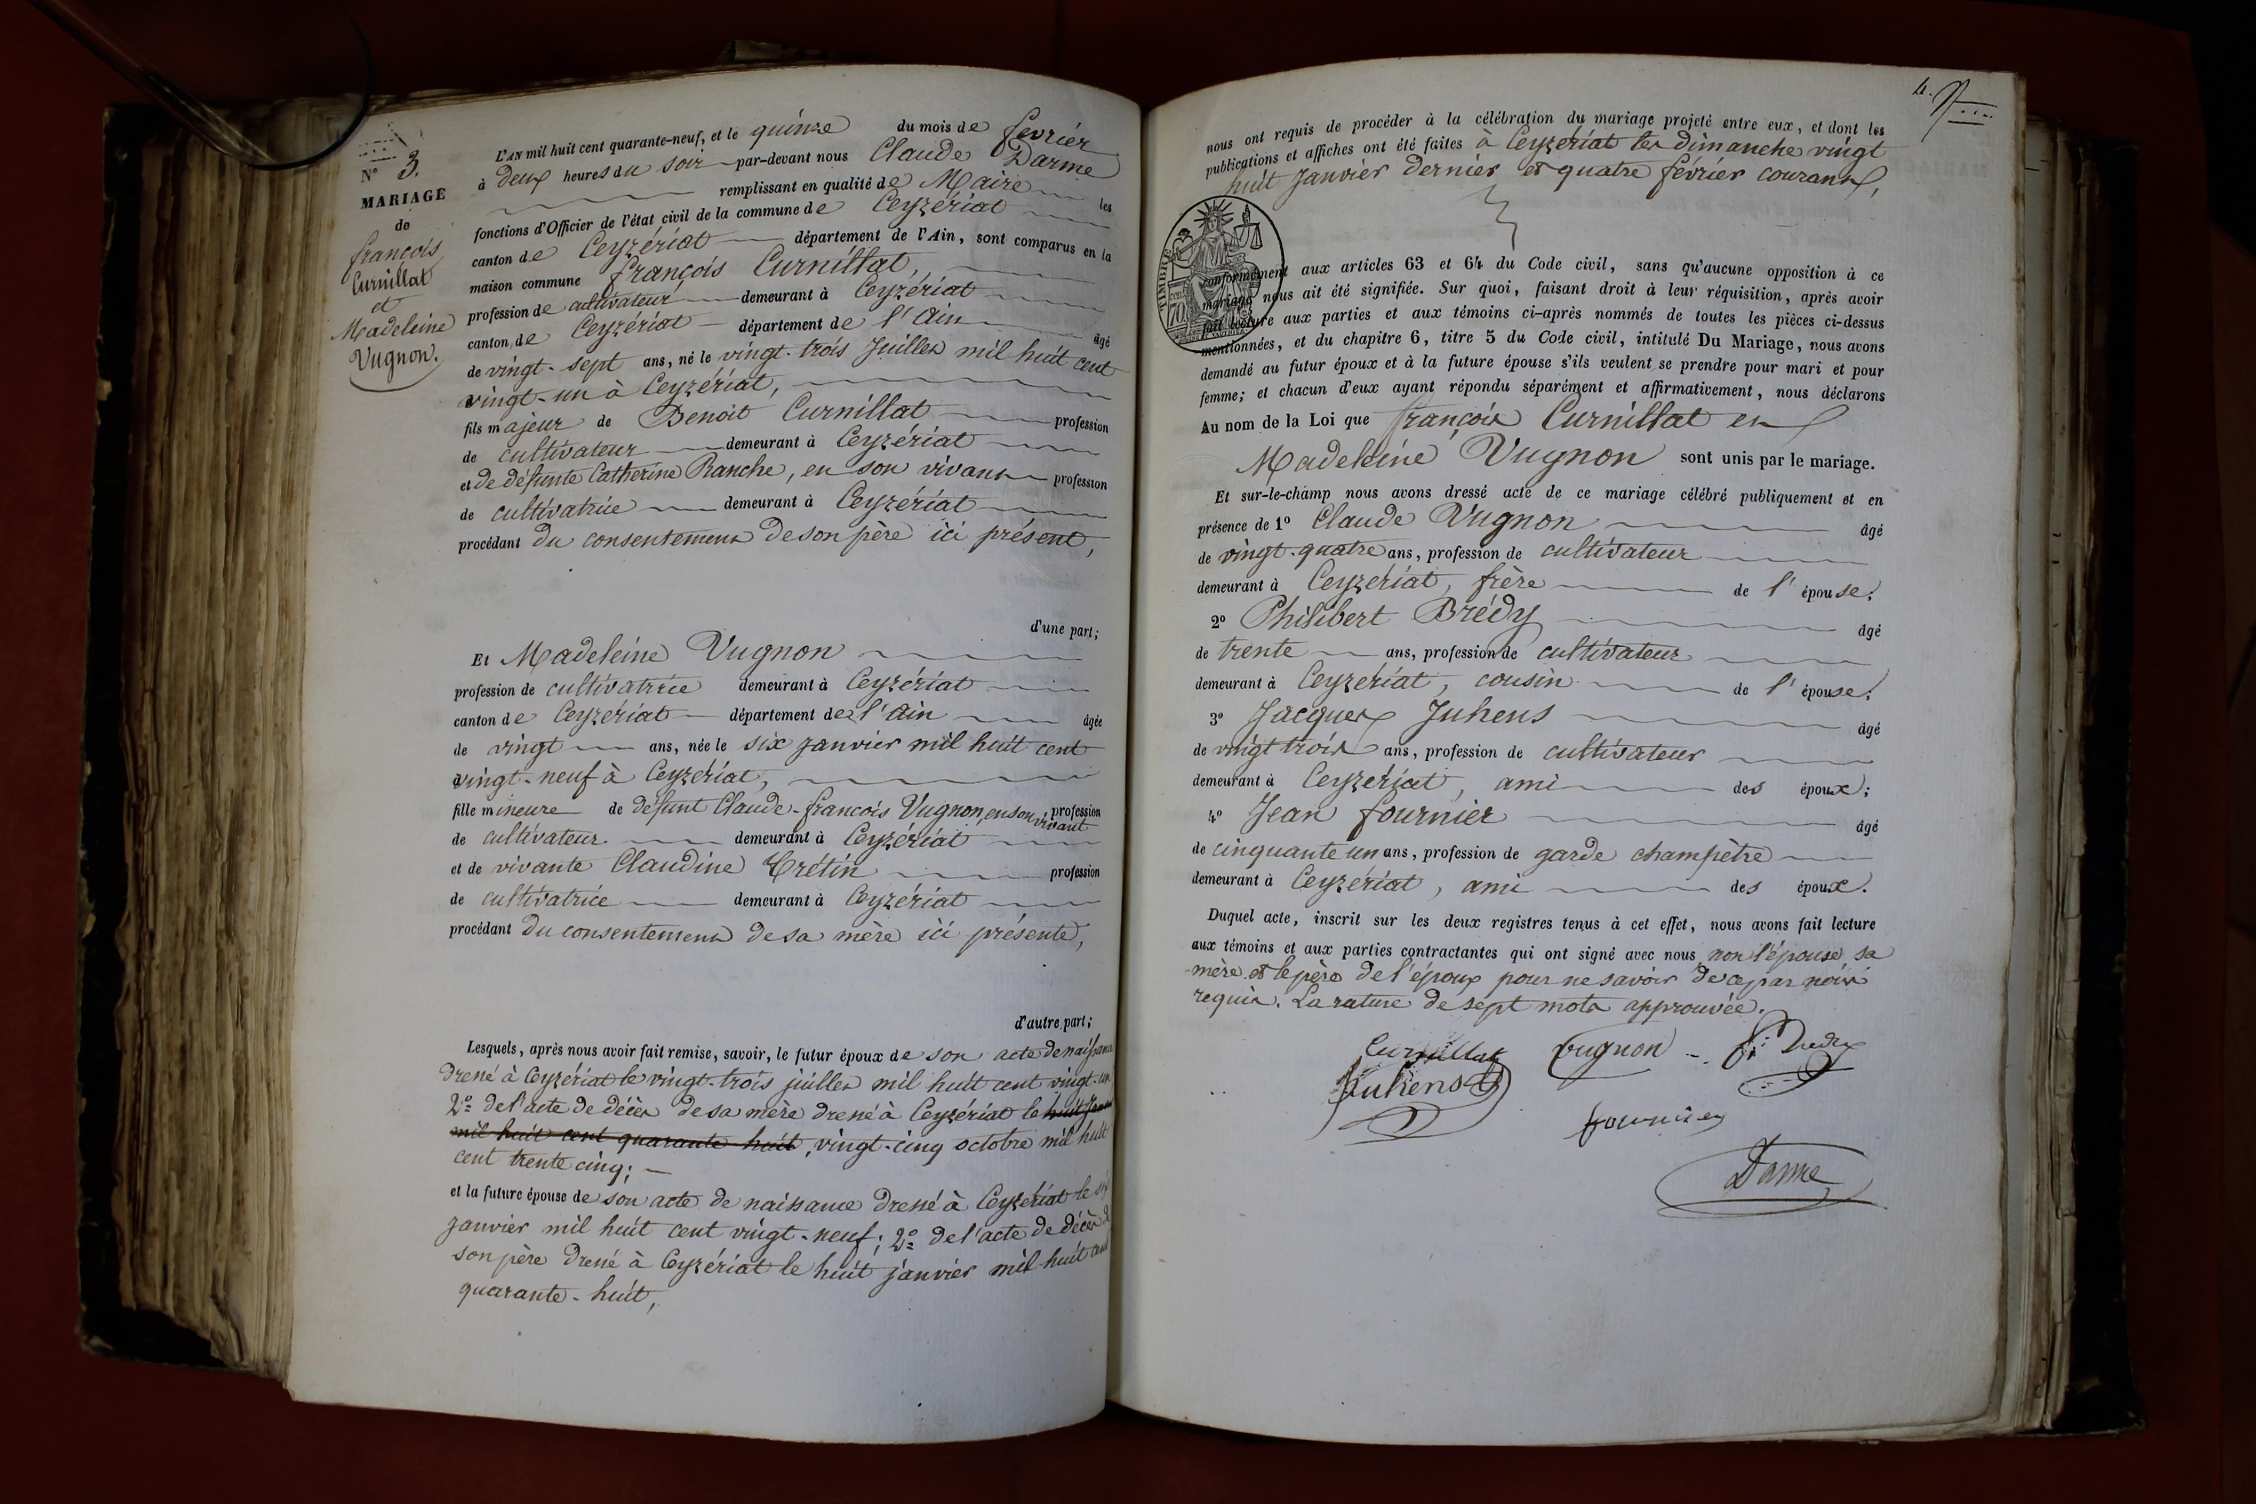 N° 3.
MARIAGE
de
françois
Curnillat
et
Madeleine
Vugnon.
L'AN mil huit cent quarante-neuf, et le quinze du mois de fevrier
à deux heures du soir par-devant nous Claude Darme
remplissant en qualité de Maire les
fonctions d'Officier de l'état civil de la commune de Ceyzériat
canton de Ceyzériat département de l'Ain, sont comparus en la
maison commune françois Curnillat,
profession de cultivateur demeurant à Ceyzériat
canton de Ceyzériat département de l'Ain âgé
de vingt-sept ans, né le vingt-trois Juillet mil huit cent
vingt-un à Ceyzériat,
fils majeur de Benoit Curnillat profession
de cultivateur demeurant à Ceyzériat
et de défunte Catherine Ranche, en son vivant profession
de cultivatrice demeurant à Ceyzériat
procédant du consentement de son père ici présent,
d'une part;
Et Madeleine Vugnon
profession de cultivatrice demeurant à Ceyzériat
canton de Ceyzériat département de l'Ain âgée
de vingt ans, née le six janvier mil huit cent
vingt-neuf à Ceyzériat,
fille mineure de défunt Claude-françois Vugnon, en son vivant profession
de cultivateur demeurant à Ceyzériat
et de vivante Claudine Crétin profession
de cultivatrice demeurant à Ceyzériat
procédant du consentement de sa mère ici présente,
d'autre part;
Lesquels, après nous avoir fait remise, savoir, le futur époux de son acte de naissance
dressé à Ceyzériat le vingt-trois juillet mil huit cent vingt-un
2° de l'acte de décès de sa mère dressé à Ceyzériat le huit Janvier
mil huit cent quarante huit, vingt-cinq octobre mil huit
cent trente cinq;
et la future épouse de son acte de naissance dressé à Ceyzériat le six
janvier mil huit cent vingt-neuf; 2° de l'acte de décès de
son père dressé à Ceyzériat le huit janvier mil huit cent
quarante-huit,
4.
nous ont requis de procéder à la célébration du mariage projeté entre eux, et dont les
publications et affiches ont été faites à Ceyzériat les dimanche vingt
huit Janvier dernier et quatre février courant,
TIMBRE
conformément aux articles 63 et 64 du Code civil, sans qu'aucune opposition à ce
mariage nous ait été signifiée. Sur quoi, faisant droit à leur réquisition, après avoir
fait lecture aux parties et aux témoins ci-après nommés de toutes les pièces ci-dessus
mentionnées, et du chapitre 6, titre 5 du Code civil, intitulé Du Mariage, nous avons
demandé au futur époux et à la future épouse s'ils veulent se prendre pour mari et pour
femme; et chacun d'eux ayant répondu séparément et affirmativement, nous déclarons
Au nom de la Loi que françois Curnillat et
Madeleine Vugnon sont unis par le mariage.
Et sur-le-champ nous avons dressé acte de ce mariage célébré publiquement et en
présence de 1° Claude Vugnon âgé
de vingt-quatre ans, profession de cultivateur
demeurant à Ceyzériat, frère de l'épouse;
2° Philibert Brédy âgé
de trente ans, profession de cultivateur
demeurant à Ceyzériat, cousin de l'épouse;
3° Jacques Juhens âgé
de vingt trois ans, profession de cultivateur
demeurant à Ceyzériat, ami des époux;
4° Jean fournier âgé
de cinquante un ans, profession de garde champêtre
demeurant à Ceyzériat, ami des époux.
Duquel acte, inscrit sur les deux registres tenus à cet effet, nous avons fait lecture
aux témoins et aux parties contractantes qui ont signé avec nous non l'épouse, sa
mère et le père de l'époux pour ne savoir de ce par nous
requis. La rature de sept mots approuvée.
Curnillat Vugnon
Juhens
fournier
Darme